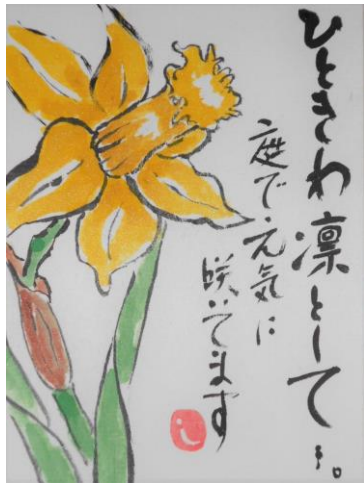 ひときわ凛として…。
庭で元気に
咲いてます